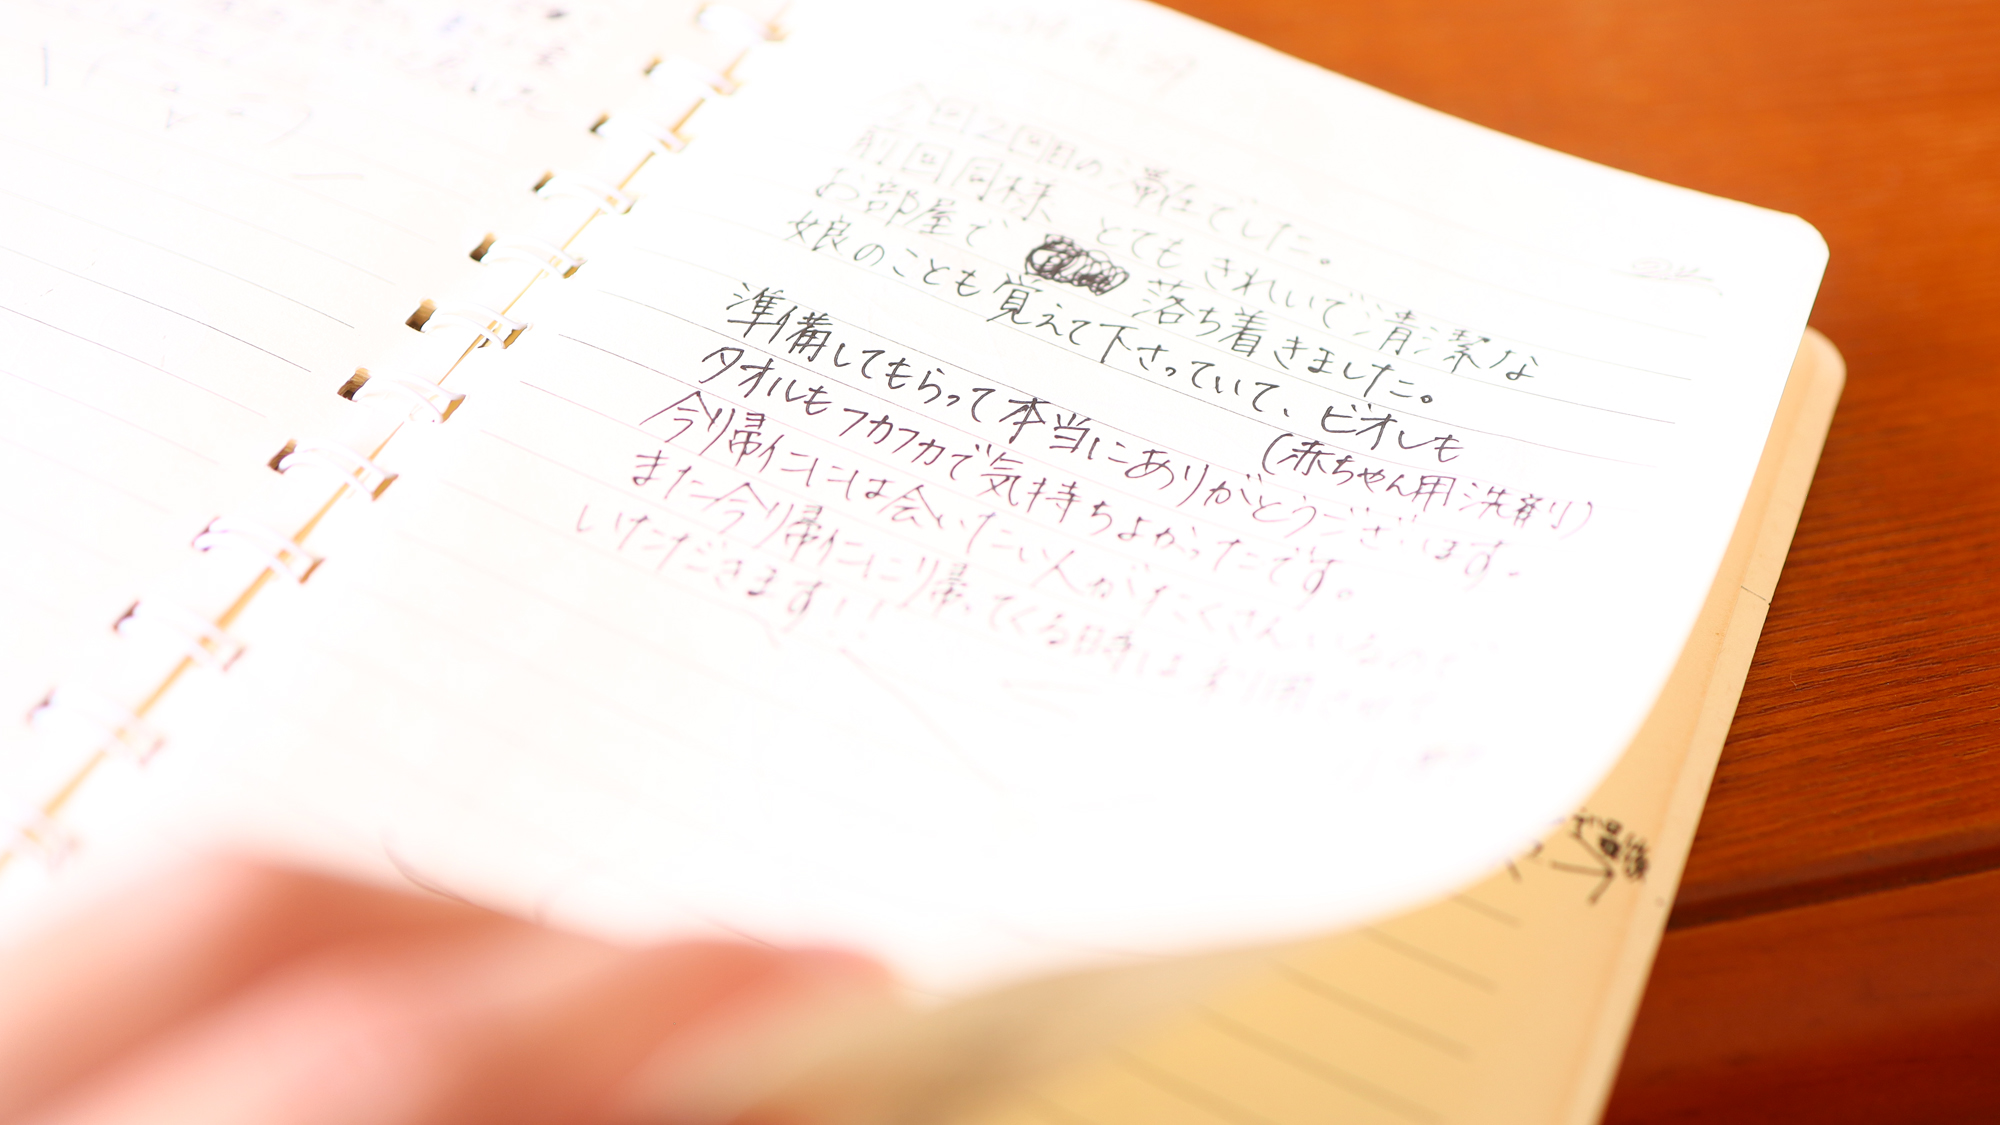 今回2回目の滞在でした。
前回同様、とてもきれいで清潔な
お部屋で 落ち着きました。
娘のことも覚えて下さっていて、ビオレも
(赤ちゃん用洗剤)
準備してもらって本当にありがとうございます。
タオルもフカフカで気持ちよかったです。
今帰仁には会いたい人がたくさんいるので
また今帰仁に帰ってくる時は利用させて
いただきます!!